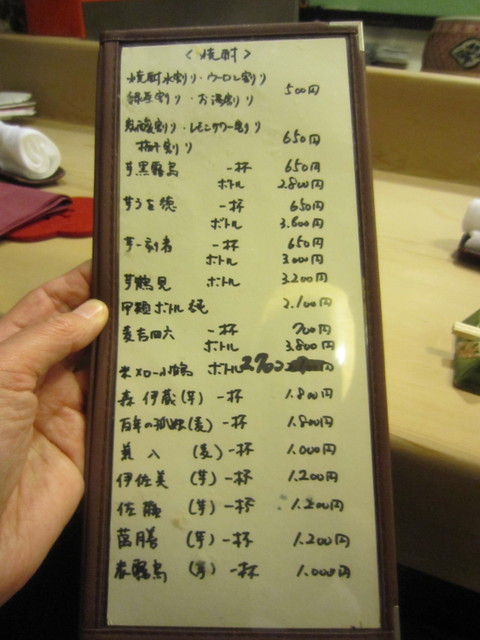 〈焼酎〉
焼酎水割り・ウーロン割り
緑茶割り・お湯割り 500円
炭酸割り・レモンサワー割り
梅干割り 650円
芋黒霧島 一杯 650円
ボトル 2.800円
芋うを徳 一杯 650円
ボトル 3.600円
芋一刻者 一杯 650円
ボトル 3.000円
芋鶴見 ボトル 3.200円
甲類ボトル 2.100円
麦吉四六 一杯 700円
ボトル 3.800円
米 ボトル 2700円
森伊蔵(芋)一杯 1.800円
百年の孤独(麦)一杯 1.800円
兼八 (麦)一杯 1.000円
伊佐美 (芋)一杯 1.200円
佐藤 (芋)一杯 1.200円
萬膳 (芋)一杯 1.200円
赤霧島 (芋)一杯 1.000円